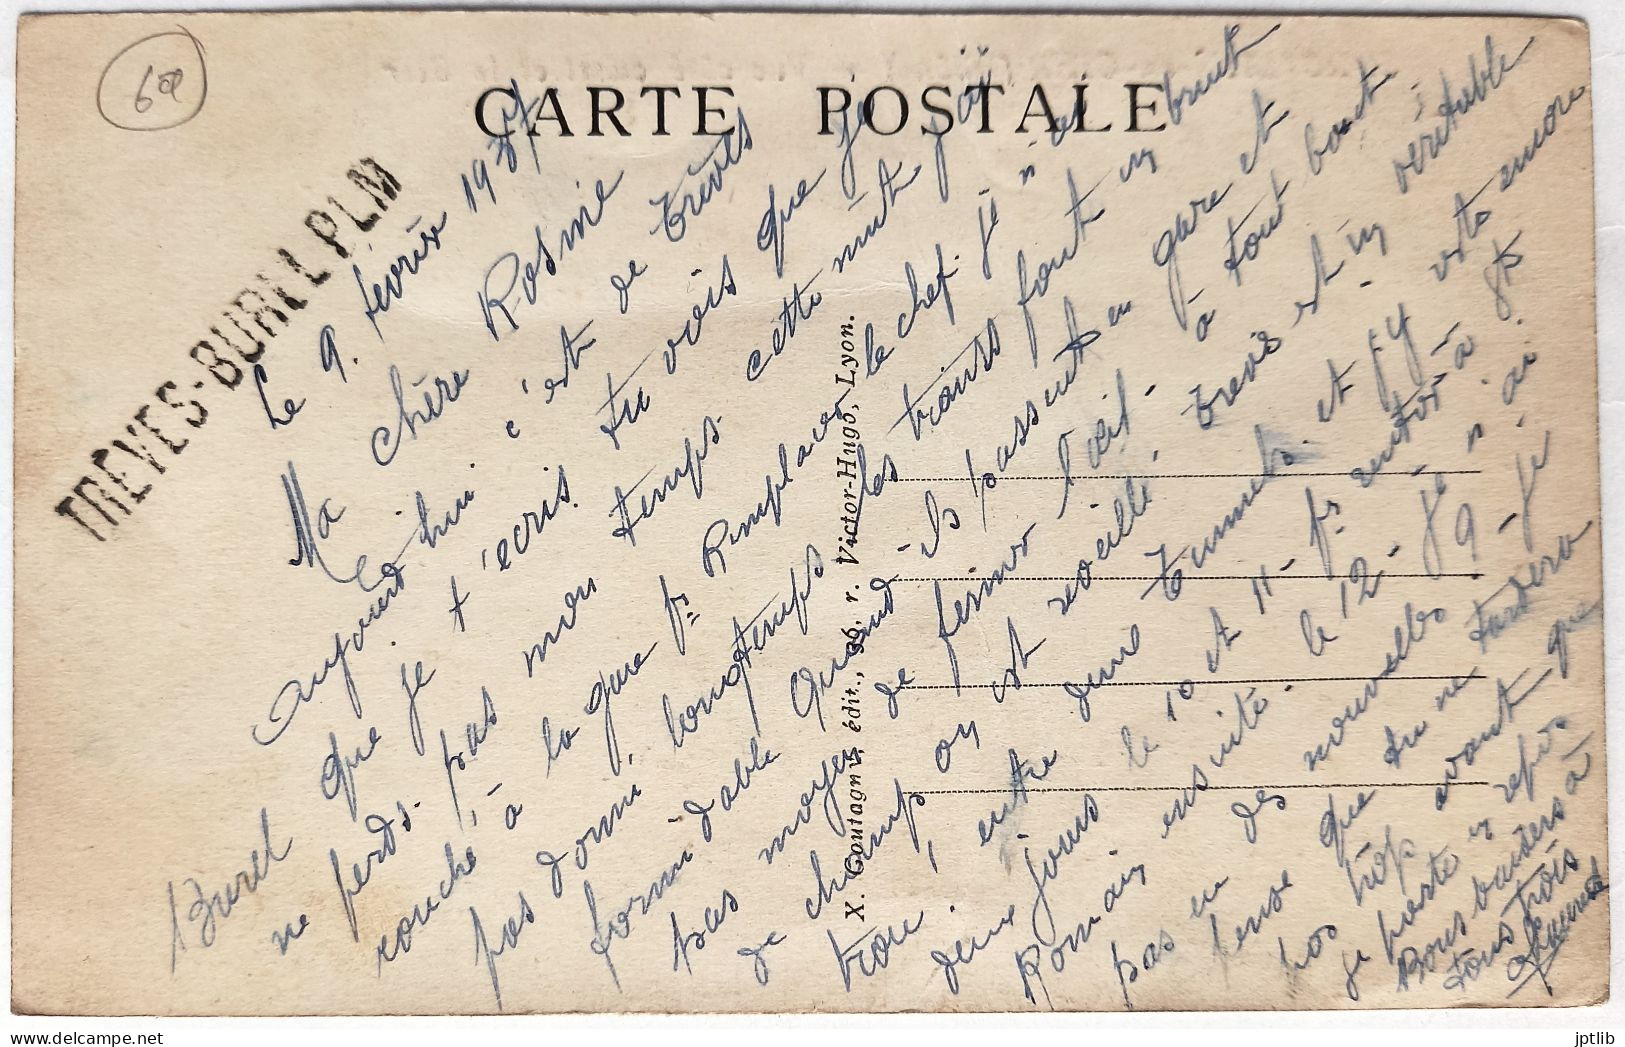 60
CARTE POSTALE
TREVES-BUREL PLM
Le 9. février 1937
Ma chère Rosine
Aujourd'hui c'est de Trèves
Burel que je t'écris. tu vois que je
ne perds pas mon temps. cette nuit j'ai
couché à la gare pr Remplacer le chef. je n'ai
pas dormi longtemps les trains font un bruit
formidable Quand ils passent en gare et
pas moyen de fermer l'œil. à tout bout
de champ on est réveillé. Trèves est un véritable
trou, entre deux tunnels. et j'y reste encore
deux jours le 10 et 11 pr rentrer à St
Romain ensuite. le 12 - je n'ai
pas eu des nouvelles je
pense que tu ne tardera
pas trop avant que
je parte en repos
Bons baisers à
tous trois
X. Goutagny, édit., 96, r. Victor-Hugo, Lyon.
jptlib